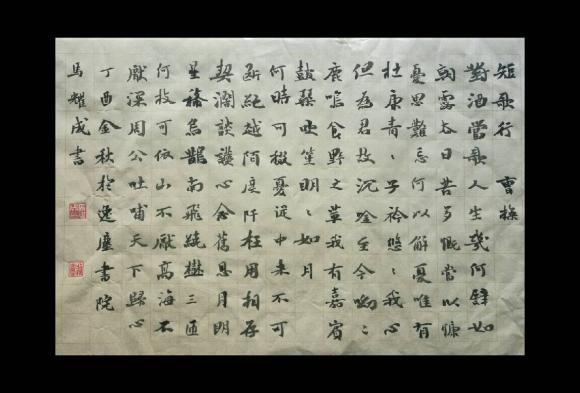 短歌行 曹操
對酒當歌人生幾何譬如
朝露去日苦多慨當以慷
憂思難忘何以解憂唯有
杜康青、子衿悠、我心
但為君故沉吟至今呦、
鹿鳴食野之苹我有嘉賓
鼓瑟吹笙明、如月
何時可掇憂從中來不可
斷絕越陌度阡枉用相存
契闊談讌心念舊恩月明
星稀烏鵲南飛繞樹三匝
何枝可依山不厭高海不
厭深周公吐哺天下歸心
丁酉金秋於逸塵書院
馬耀成書